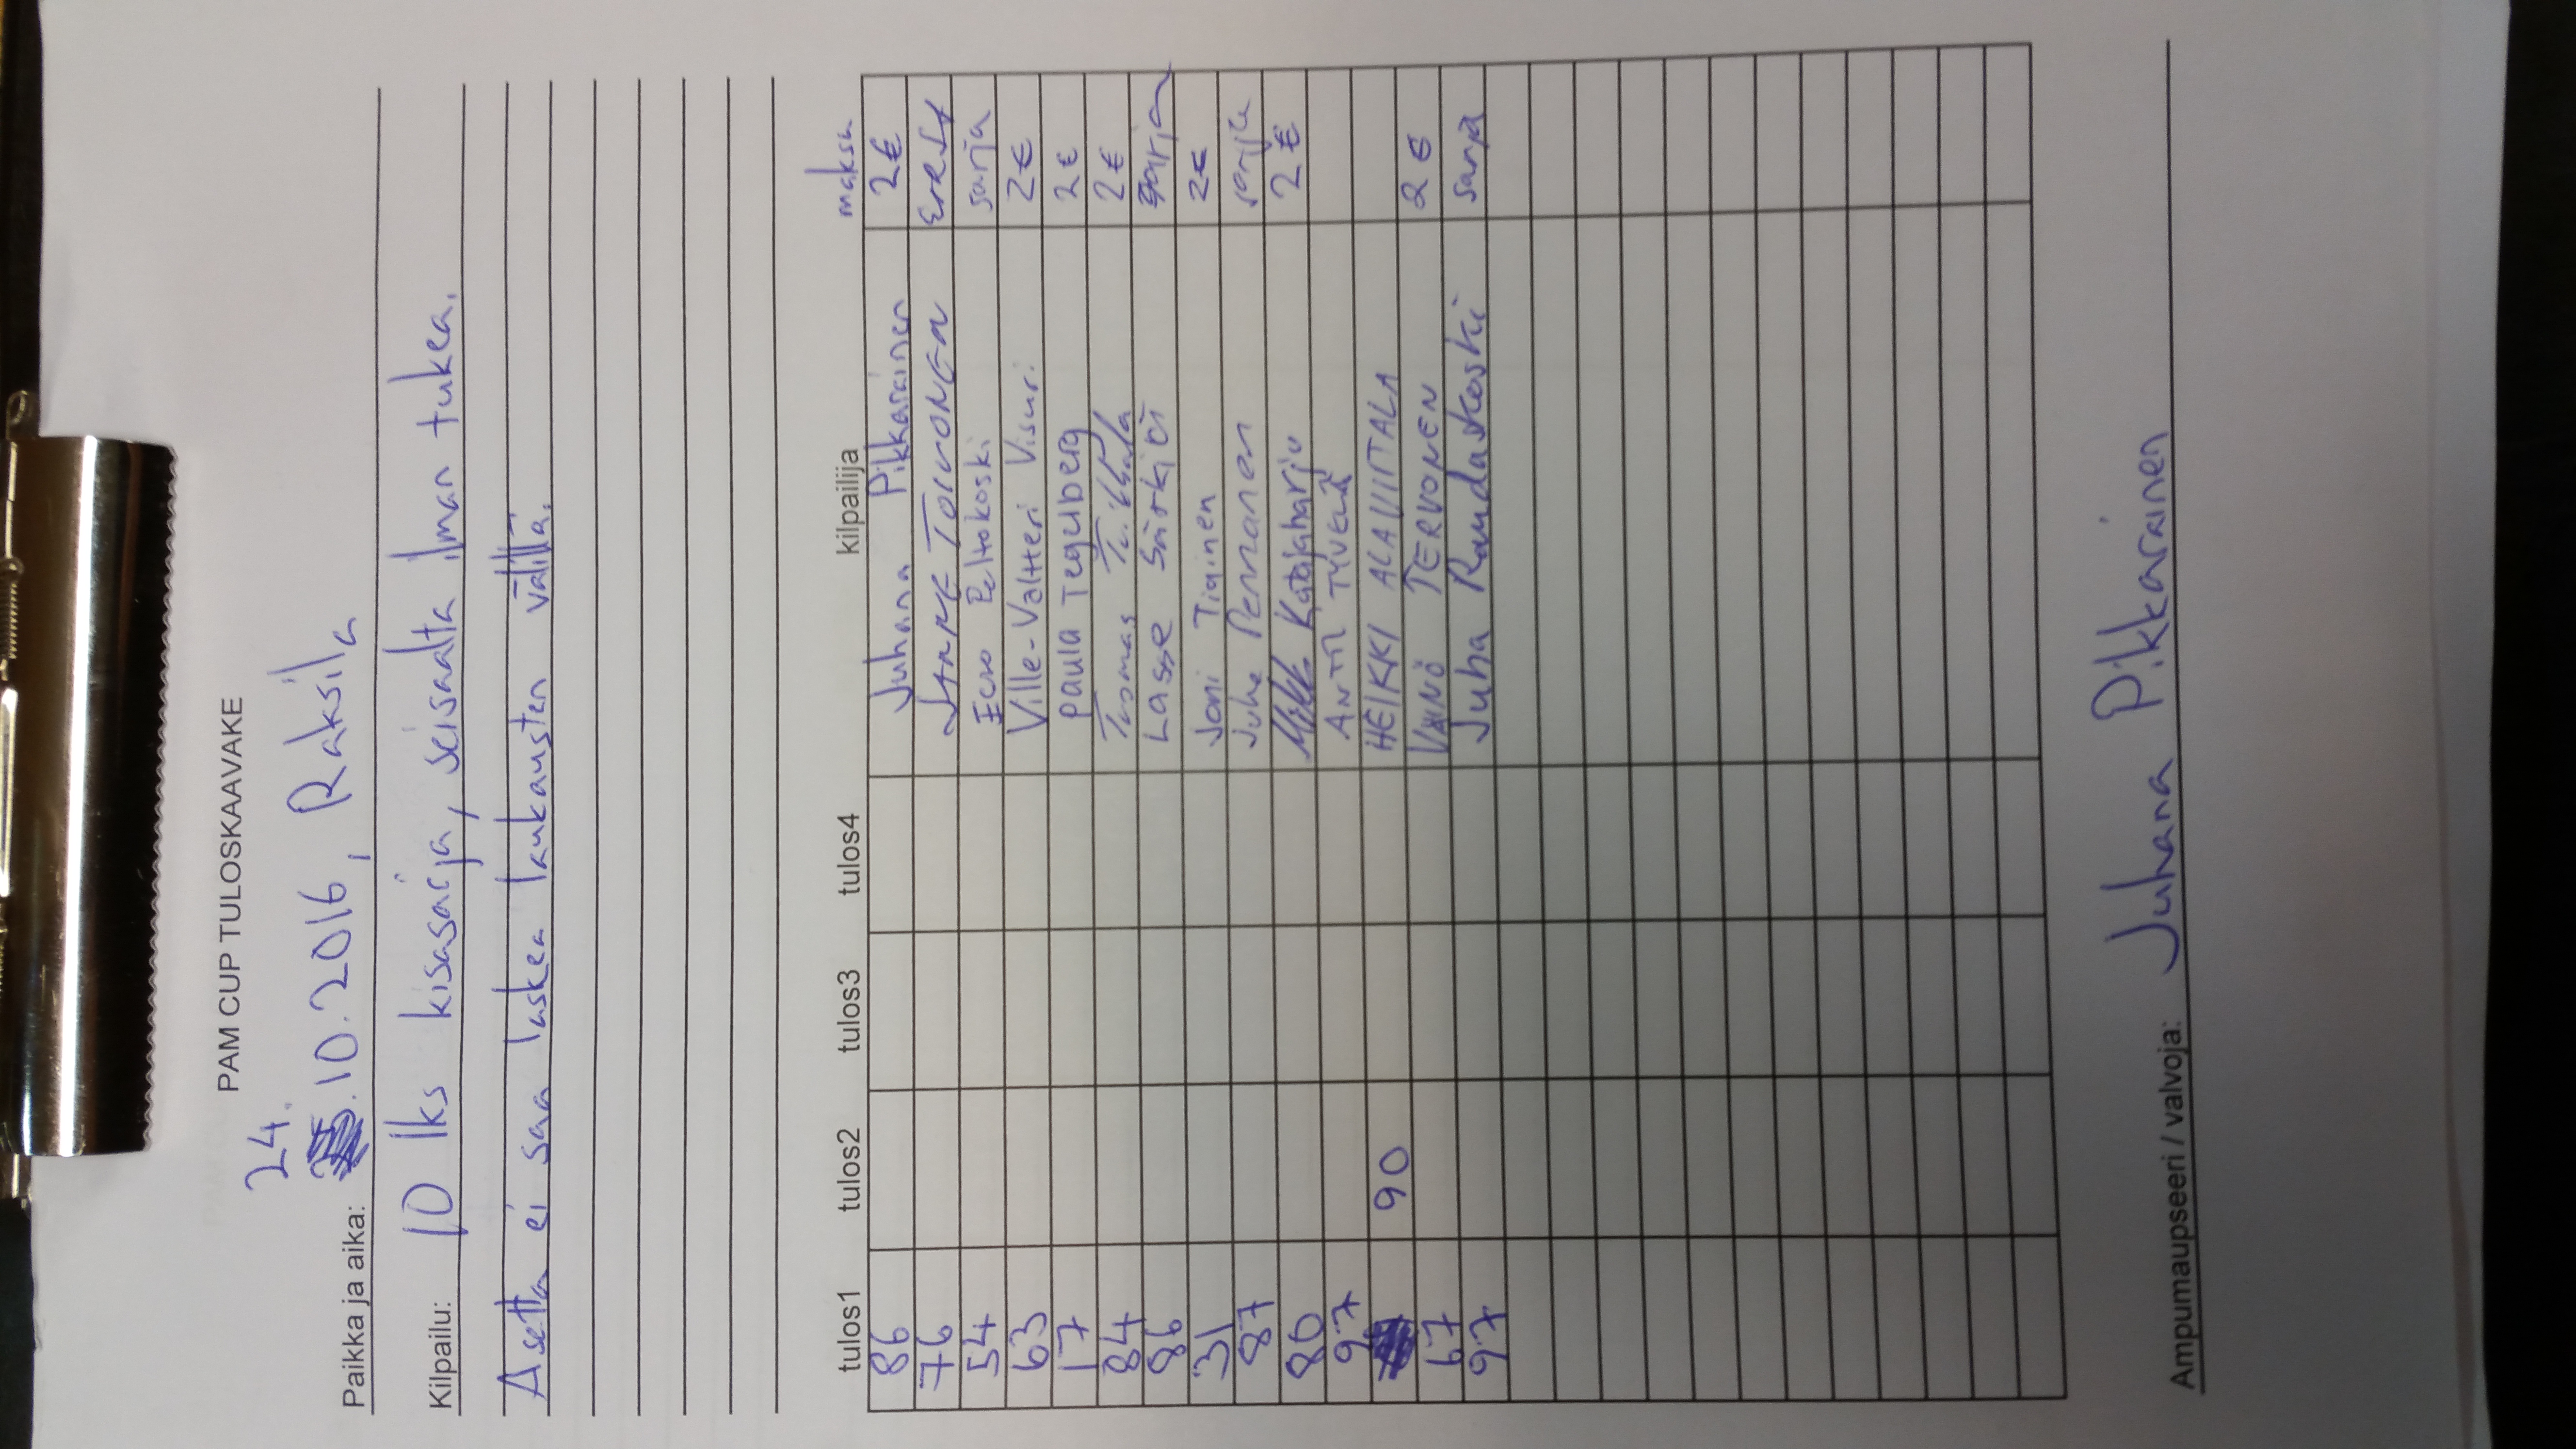 PAM CUP TULOSKAAVAKE
24.
Paikka ja aika: .10.2016, Raksila
Kilpailu: 10 lks kisasarja, seisaalta ilman tukea.
Asetta ei saa laskea laukausten välillä.
tulos1 tulos2 tulos3 tulos4 kilpailija maksu
86 Juhana Pikkarainen 2€
76 Janne Toivonen
54 Eero Peltokoski sarja
63 Ville-Valtteri Visuri. 2€
17 Paula Tegelberg 2€
84 Tuomas 2€
86 Lasse Särkiö sarja
31 Joni Tiainen 2€
87 Juha Pernanen sarja
80 Katajaharju 2€
97 Antti Tyvelä
90 HEIKKI ALAVIITALA
67 VÄINÖ TERVONEN 2€
97 Juha Raudaskoski sarja
Ampumaupseeri / valvoja: Juhana Pikkarainen